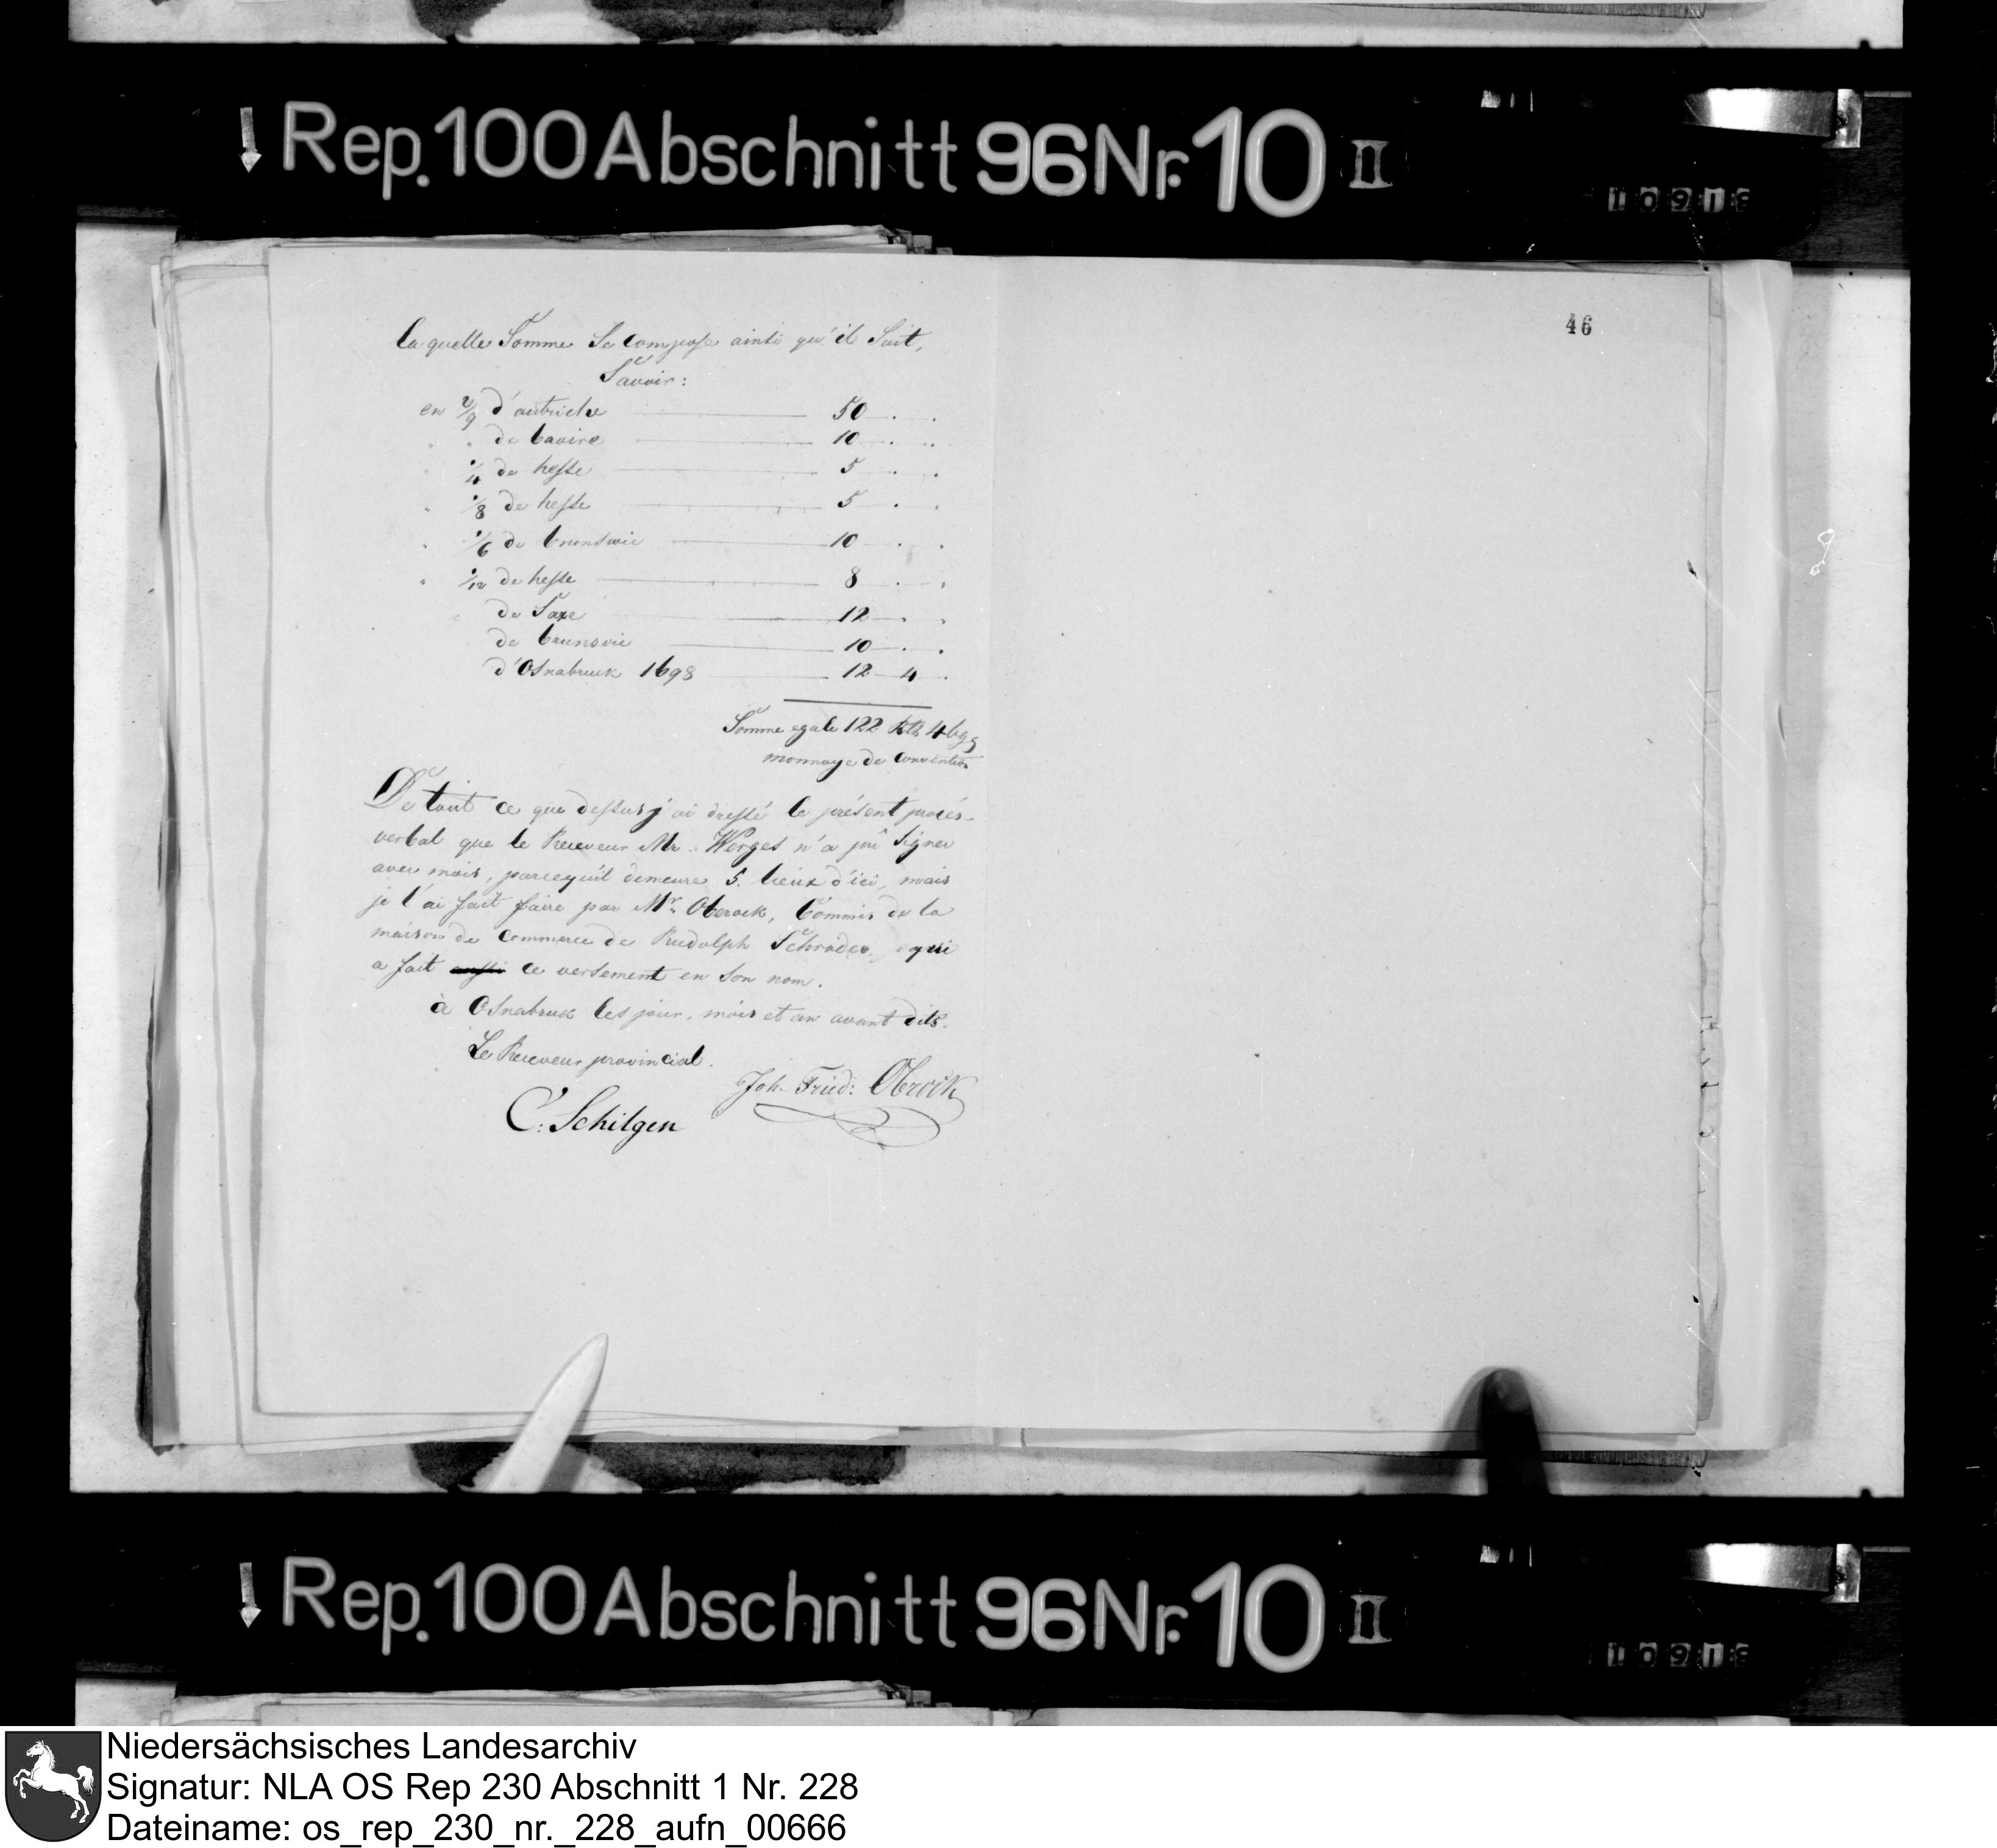 Rep. 100 Abschnitt 96 Nr. 10 II
10918
46
laquelle Somme Se compose ainsi qu'il Suit,
Savoir:
en 2/9 d'autriche 50 . .
" " de baviere 10 . .
" 1/4 de hesse 5 . .
" 1/8 de hesse 5 . .
" 1/6 de brunswic 10 . .
" 1/12 de hesse 8 . .
de Saxe 12 . .
de brunsvic 10 . .
d'Osnabruck 1698 12 4 .
Somme egale 122 Rth 4 bgs
monnaye de Convention
De tout ce que dessus j'ai dressé le présent procés-
verbal que le Receveur Mr. Werges n'a pû Signer
avec mois, parcequ'il demeure 5. lieux d'ici, mais
je l'ai fait faire par Mr. Obrock, Commis de la
maison de Commerce de Rudolph Schroder, qui
a fait aussi ce versement en Son nom.
à Osnabruck les jour, mois et an avant dits.
Le Receveur provincial.
Joh. Fried: Obrock
C. Schilgen
Rep. 100 Abschnitt 96 Nr. 10 II
10918
Niedersächsisches Landesarchiv
Signatur: NLA OS Rep 230 Abschnitt 1 Nr. 228
Dateiname: os_rep_230_nr._228_aufn_00666